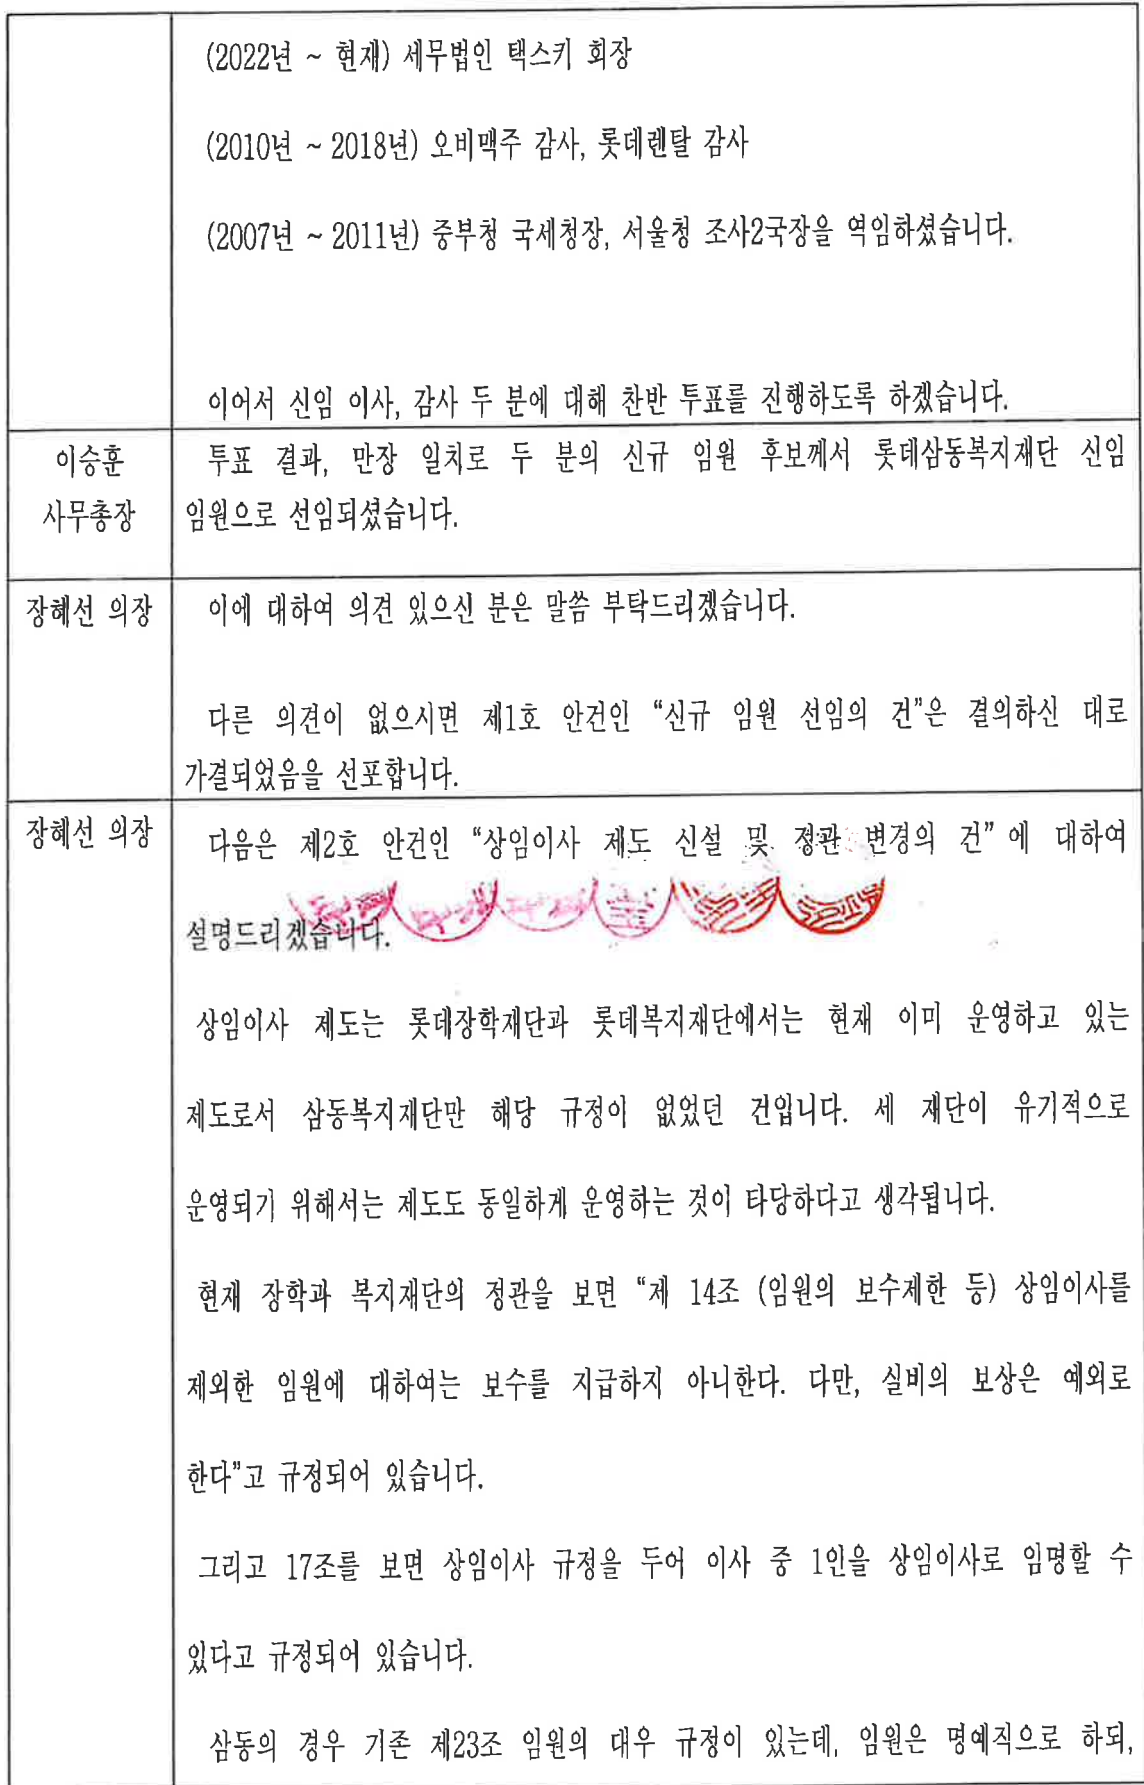 (2022년 ~ 현재) 세무법인 택스키 회장
(2010년 ~ 2018년) 오비맥주 감사, 롯데렌탈 감사
(2007년 ~ 2011년) 중부청 국세청장, 서울청 조사2국장을 역임하셨습니다.
이어서 신임 이사, 감사 두 분에 대해 찬반 투표를 진행하도록 하겠습니다.
이승훈
사무총장
투표 결과, 만장 일치로 두 분의 신규 임원 후보께서 롯데삼동복지재단 신임
임원으로 선임되셨습니다.
장혜선 의장
이에 대하여 의견 있으신 분은 말씀 부탁드리겠습니다.
다른 의견이 없으시면 제1호 안건인 “신규 임원 선임의 건”은 결의하신 대로
가결되었음을 선포합니다.
장혜선 의장
다음은 제2호 안건인 “상임이사 제도 신설 및 정관 변경의 건” 에 대하여
설명드리겠습니다.
상임이사 제도는 롯데장학재단과 롯데복지재단에서는 현재 이미 운영하고 있는
제도로서 삼동복지재단만 해당 규정이 없었던 건입니다. 세 재단이 유기적으로
운영되기 위해서는 제도도 동일하게 운영하는 것이 타당하다고 생각됩니다.
현재 장학과 복지재단의 정관을 보면 “제 14조 (임원의 보수제한 등) 상임이사를
제외한 임원에 대하여는 보수를 지급하지 아니한다. 다만, 실비의 보상은 예외로
한다”고 규정되어 있습니다.
그리고 17조를 보면 상임이사 규정을 두어 이사 중 1인을 상임이사로 임명할 수
있다고 규정되어 있습니다.
삼동의 경우 기존 제23조 임원의 대우 규정이 있는데, 임원은 명예직으로 하되,